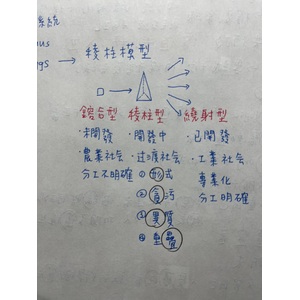 系統
us
gs → 稜柱模型
鎔合型 稜柱型 繞射型
·未開發 ·開發中 ·已開發
·農業社會 ·过渡社會 ·工業社會
分工不明確 ① 形式 專業化
② 貪污 分工明確
③ 異質
④ 重疊